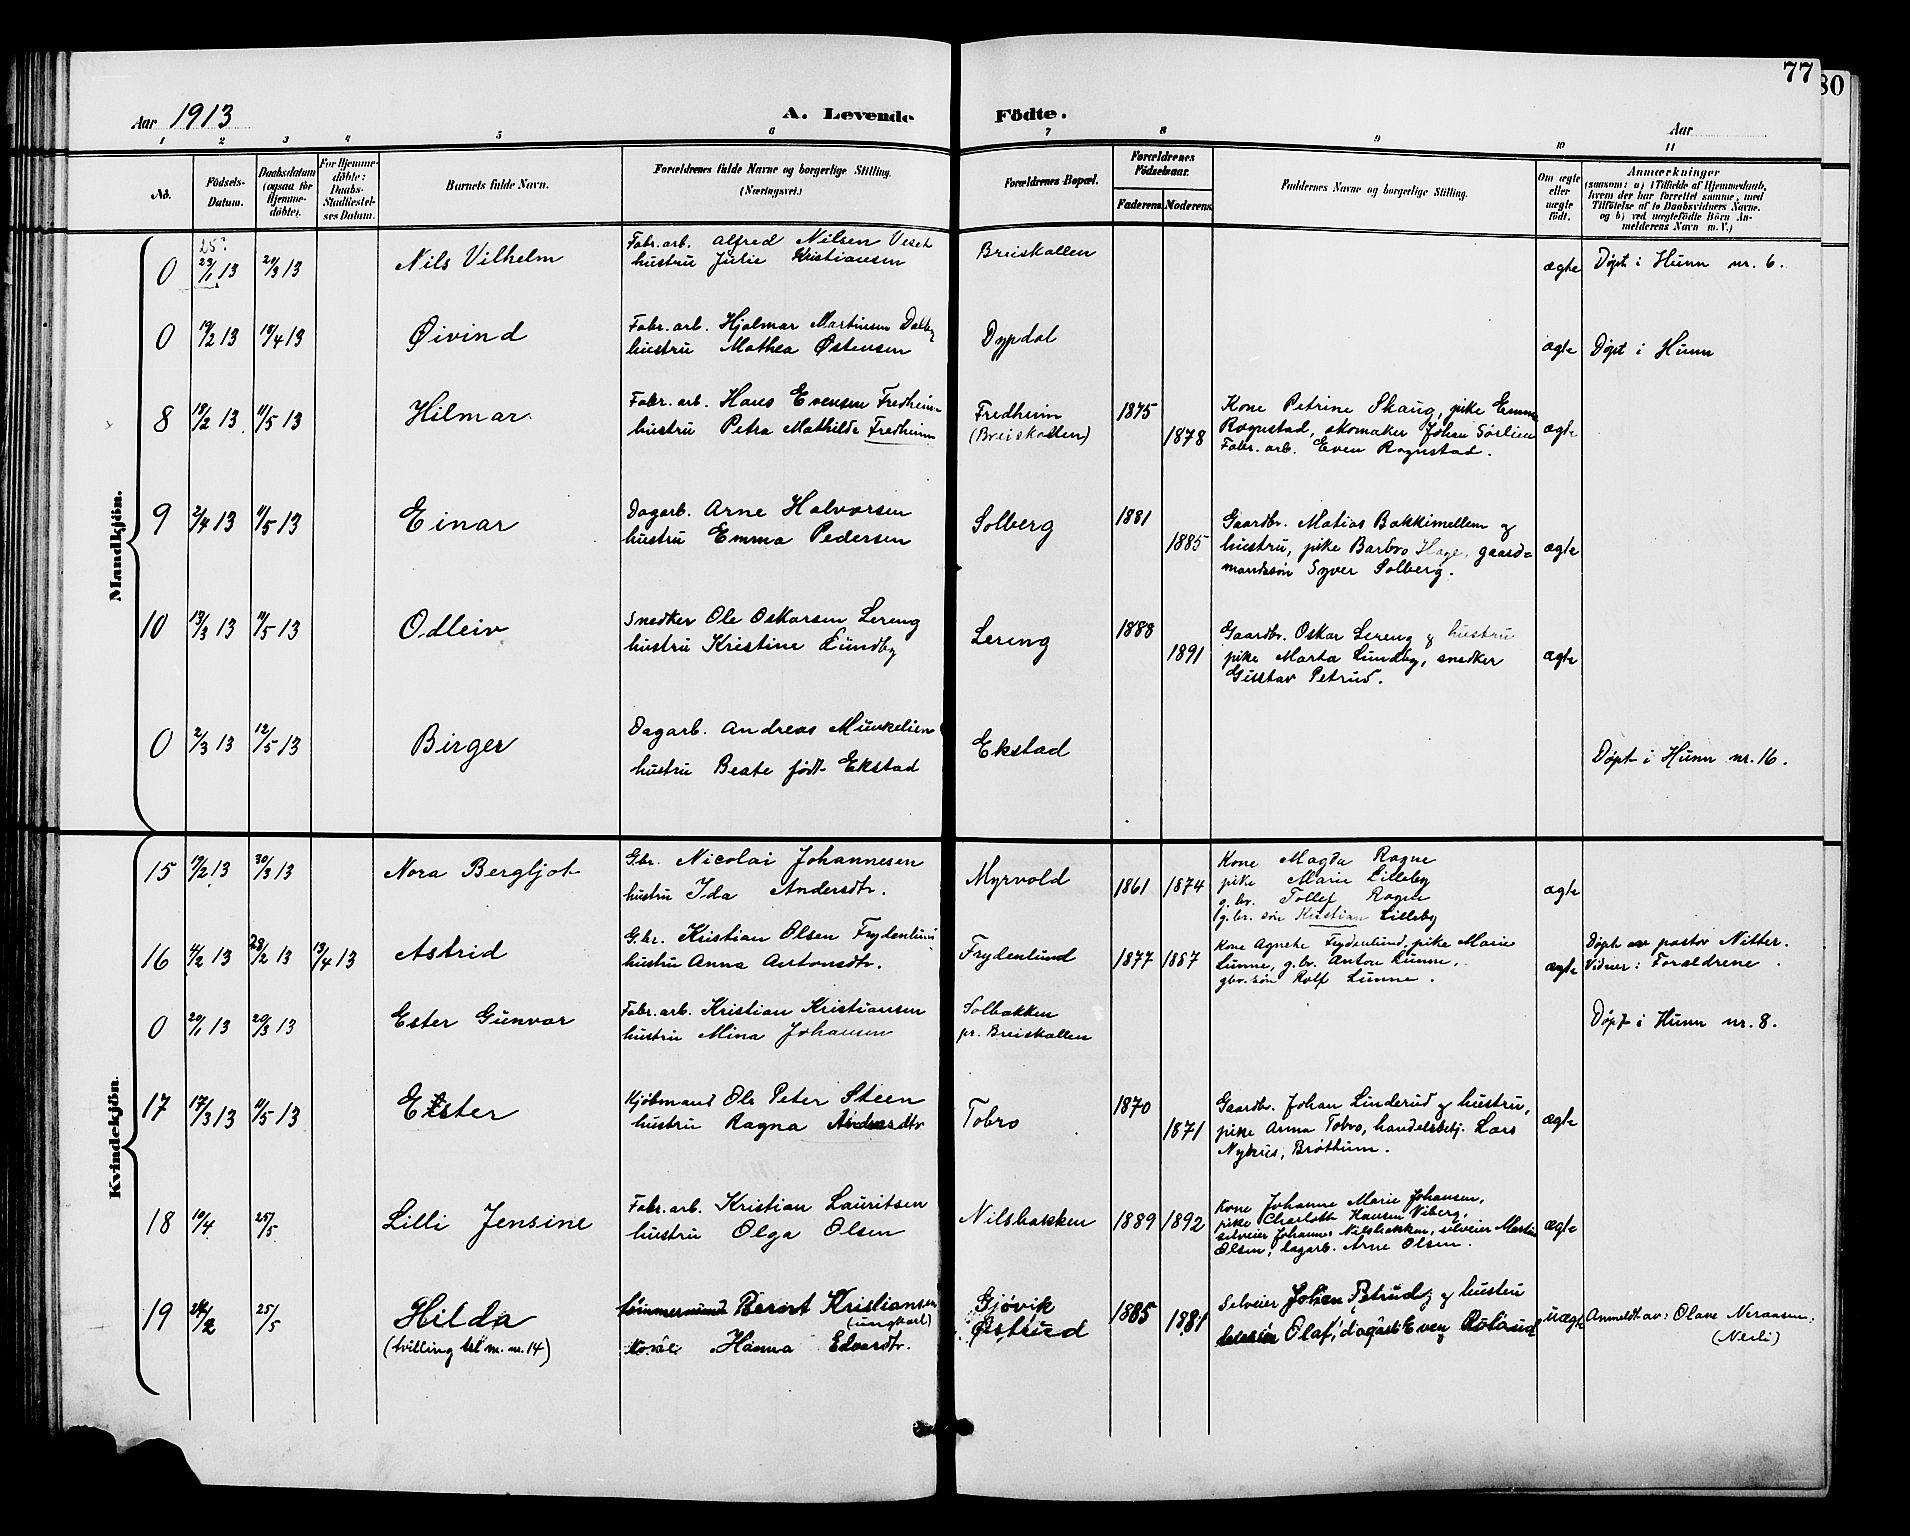 77
80
Aar 1913
A. Levende Födte.
Aar
1 2 3 4 5 6 7 8 9 10 11
No.
Födsels-Datum.
Daabsdatum (ogsaa for Hjemme-döbte).
For Hjemme-döbte: Daabs-Stadfæstel-ses Datum.
Barnets fulde Navn.
Forældrenes fulde Navne og borgerlige Stilling.
(Næringsvei.)
Forældrenes Bopæl.
Forældrenes Födselsaar.
Faderens. Moderens.
Faddernes Navne og borgerlige Stilling.
Om ægte eller uægte födt.
Anmærkninger
(saasom: a) i Tilfælde af Hjemmedaab,
hvem der har forrettet samme, med
Tilföielse af to Daabsvidners Navne.
og b) ved uægtefödte Börn An-
melderens Navn m. V.)
Mandkjön.
25?
0 23/1 13 24/3 13 Nils Vilhelm Fabr.arb. Alfred Nilsen Veset
hustru Julie Kristiansen
Breiskallen ægte Døpt i Hunn nr. 6.
0 19/2 13 13/4 13 Øivind Fabr.arb. Hjalmar Martinsen Dalby
hustru Mathea Østensen
Dypdal ægte Døpt i Hunn
8 18/2 13 11/5 13 Hilmar Fabr. arb. Hans Evensen Fredheim
hustru Petra Mathilde Fredheim
Fredheim
(Breiskallen)
1875 1878
Kone Petrine Skaug, pike Emma
Rognstad, skomaker Johan Sørlien
Fabr. arb. Even Rognstad.
ægte
9 2/4 13 11/5 13 Einar Dagarb. Arne Halvorsen
hustru Emma Pedersen
Solberg 1881 1885
Gaardbr. Matias Bakkimellem og
hustru, pike Barbro Hage, gaard=
mandssøn Syver Solberg.
ægte
10 13/3 13 11/5 13 Odleiv Snedker Ole Oskarsen Lereng
hustru Kristine Lundby
Lereng 1888 1891
Gaardbr. Oskar Lereng og hustru
pike Marta Lundby, snedker
Gustav Petrud.
ægte
0 2/3 13 12/5 13 Birger Dagarb. Andreas Munkelien
hustru Beate født Ekstad
Ekstad Døpt i Hunn nr. 16.
Kvindekjön.
15 17/2 13 30/3 13 Nora Bergljot G.br. Nicolai Johannesen
hustru Ida Andersdtr.
Myrvold 1861 1874
Kone Magda Rogne
pike Marie Lilleby
g.br. Tollef Rogne
g.br. søn Kristian Lilleby
ægte
16 4/2 13 28/2 13 13/4 13 Astrid G.br. Kristian Olsen Frydenlund
hustru Anna Antonsdtr.
Frydenlund 1877 1887
Kone Agnete Frydenlund, pike Marie
Lunne, g.br. Anton Lunne,
gbr.søn Rolf Lunne.
ægte
Døpt av pastor Nitter.
Vidner: Forældrene.
0 20/1 13 20/3 13 Ester Gunvor Fabr. arb. Kristian Kristiansen
hustru Mina Johansen
Solbakken
pr. Breiskallen
Døpt i Hunn nr. 8.
17 17/3 13 11/5 13 Ester Kjøbmand Ole Peter Steen
hustru Ragna
Tobro 1870 1871
Gaardbr. Johan Linderud og hustru,
pike Anna Tobro, handelsbetj. Lars
Nyhus, Brøttum.
ægte
18 10/4 25/5 Lilli Jensine Fabr. arb. Kristian Lauritsen
hustru Olga Olsen
Nilsbakken 1889 1892
Kone Johanne Marie Johansen,
pike Charlotte Hansen Viberg,
selveier Johannes Nilsbakken, selveier Martin
Olsen, dagarb. Arne Olsen.
ægte
19 24/2 25/5 Hilda
(tvilling til m. nr. 14)
tømmermand Berort Kristiansen
(ungkarl)
Hanna Edvardtr.
Gjøvik
Østrud
1885 1881
Selveier Johan Petrud og hustru
Olaf, Even
uægte
Anmeldt av: Olave
(Nerli)